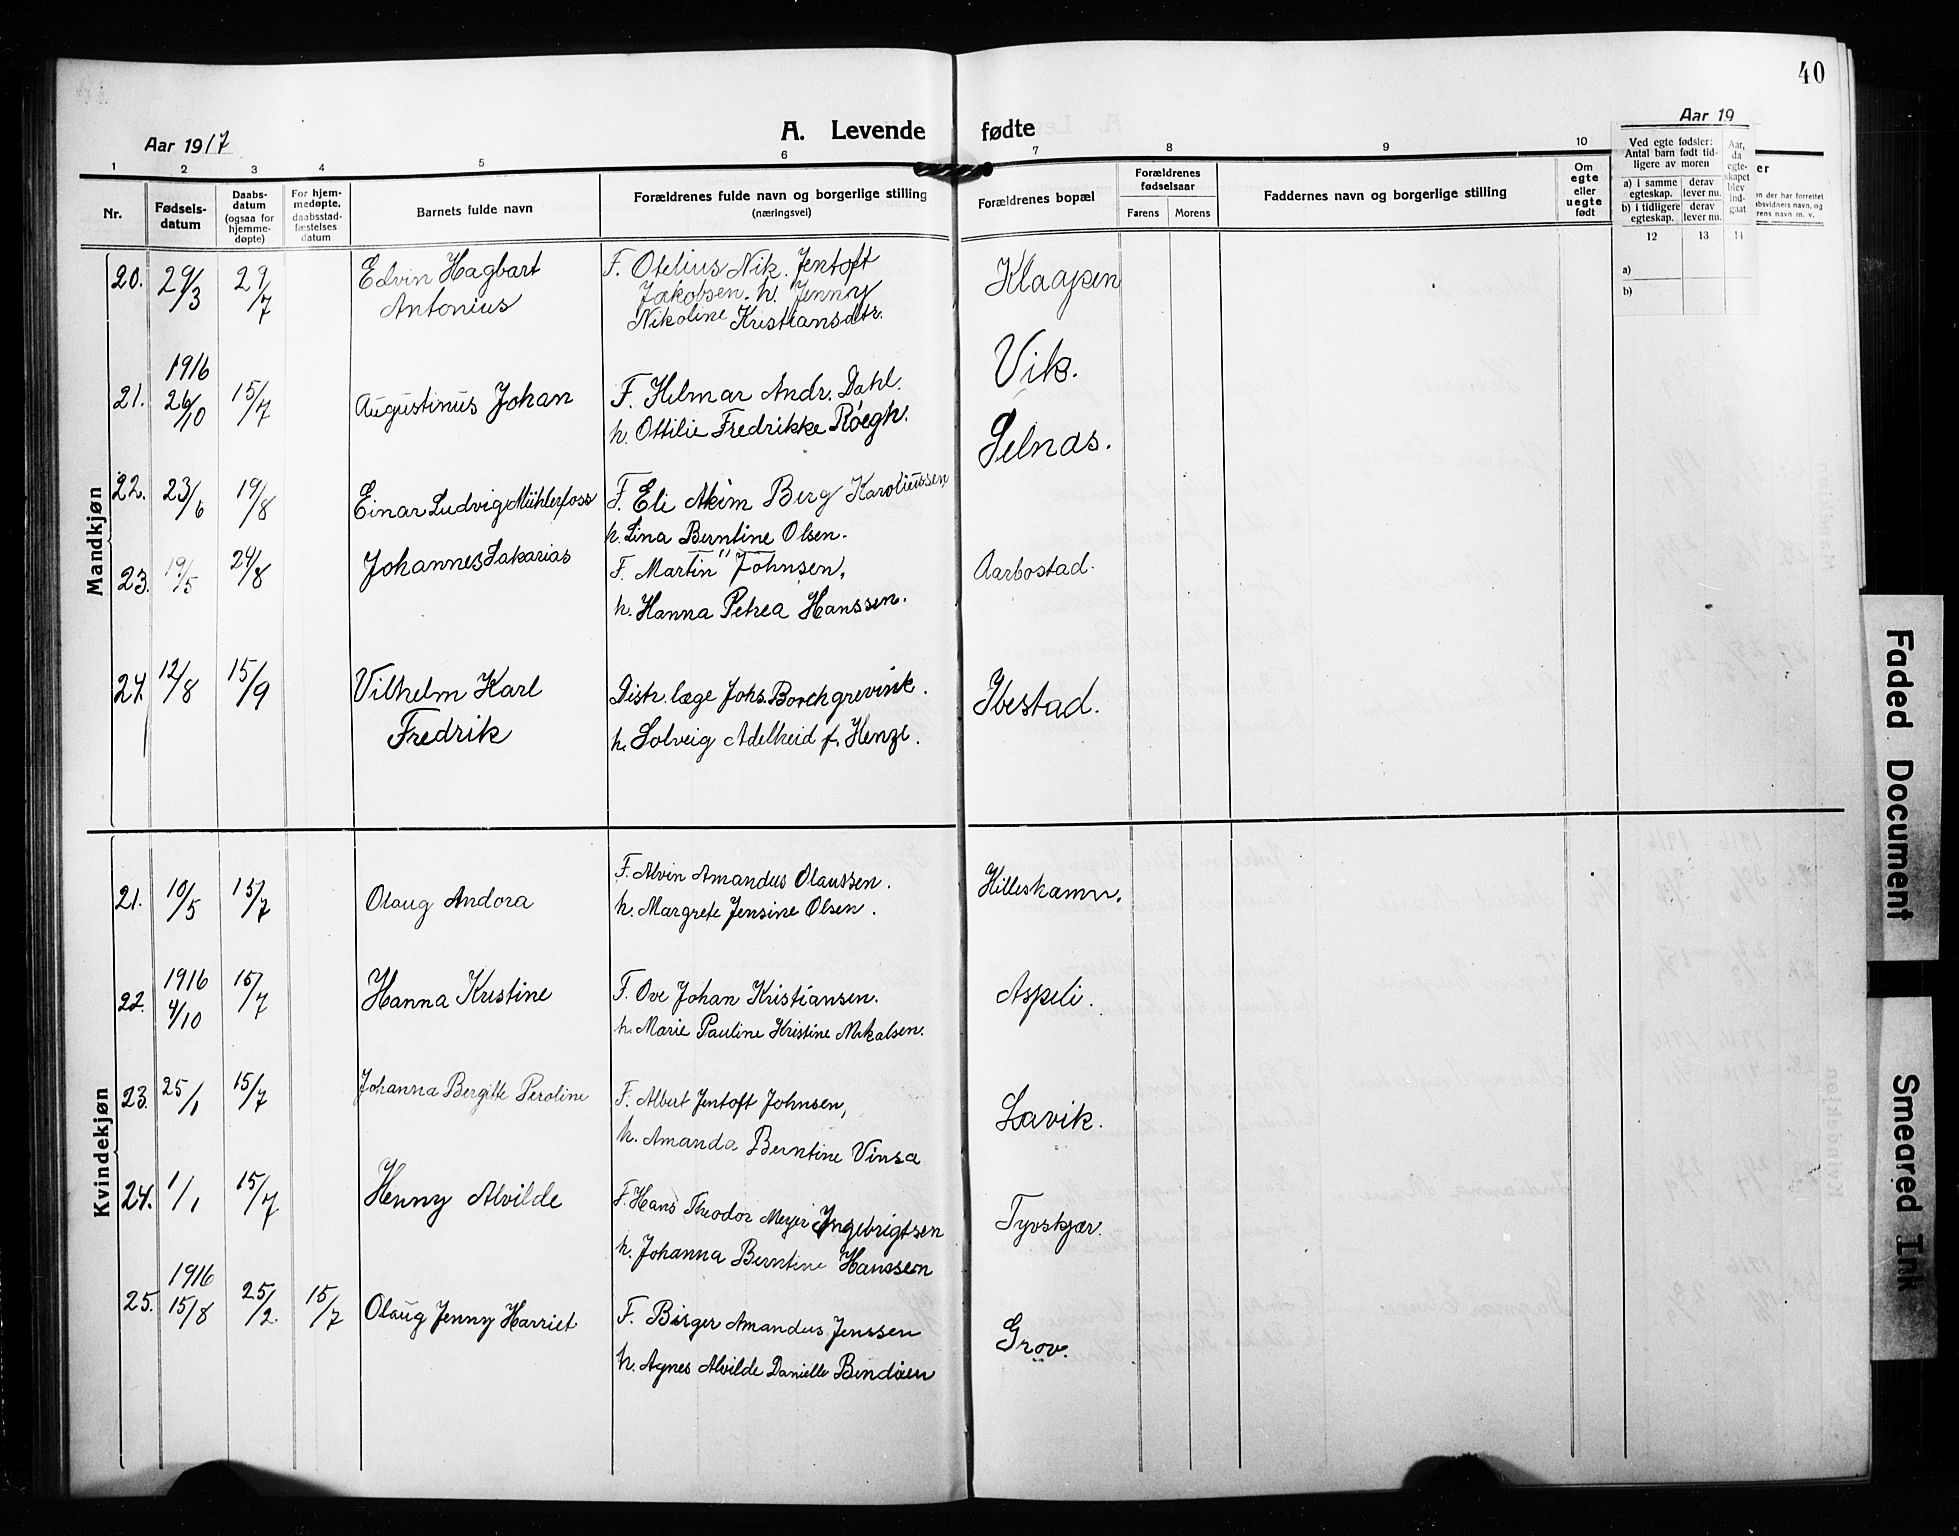 40
Aar 1917
A. Levende fødte
Aar 19
1 2 3 4 5 6 7 8 9 10
Nr.
Fødsels-
datum
Daabs-
datum
(ogsaa for
hjemme-
døpte)
For hjem-
medøpte,
daabsstad-
fæstelses
datum
Barnets fulde navn
Forældrenes fulde navn og borgerlige stilling
(næringsvei)
Forældrenes bopæl
Forældrenes
fødselsaar
Farens Morens
Faddernes navn og borgerlige stilling
Om
egte
eller
uegte
født
Ved egte fødsler:
Antal barn født tid-
ligere av moren
a) i samme
egteskap.
derav
lever nu.
b) i tidligere
egteskap.
derav
lever nu.
Aar,
da
egte-
skapet
blev
ind-
gaat
12 13 14
a)
b)
Mandkjøn
20. 29/3 29/7 Edvin Hagbart
Antonius
F. Otelius Nik. Jentoft
Jakobsen. h. Jenny
Nikoline Kristiansdtr.
Klaapen
21. 1916
26/10 15/7 Augustinus Johan
F. Hilmar Andr. Dahl.
h. Ottilie Fredrikke Røegh.
Vik.
22. 23/6 19/8 Einar Ludvig Mühlerfoss
F. Eli Akim Berg Karoliussen
h. Lina Berntine Olsen.
Selnæs.
23. 19/5 24/8 Johannes Sakarias
F. Martin Johnsen,
h. Hanna Petrea Hanssen.
Aarbostad.
24. 12/8 15/9 Vilhelm Karl
Fredrik
Distr. læge Johs. Borchgrevink.
h. Solveig Adelheid f. Henze.
Ibestad.
Kvindekjøn
21. 10/5 15/7 Olaug Andora
F. Alvin Amandus Olaussen.
h. Margrete Jensine Olsen.
Hilleshamn.
22. 1916
4/10 15/7 Hanna Kristine
F. Ove Johan Kristiansen.
h. Marie Pauline Kristine Mikalsen.
Aspeli.
23. 25/1 15/7 Johanna Bergitte Peroline
F. Albert Jentoft Johnsen,
h. Amanda Berntine Vinsa
Lavik.
24. 1/1 15/7 Henny Alvilde
F. Hans Theodor Meyer Ingebrigtsen
h. Johanna Berntine Hanssen
Tyvskjær.
25. 1916
15/8 25/2 15/7 Olaug Jenny Harriet
F. Birger Amandus Jenssen
h. Agnes Alvilde Danielle Bendixen
Grov.
Faded Document
Smeared Ink